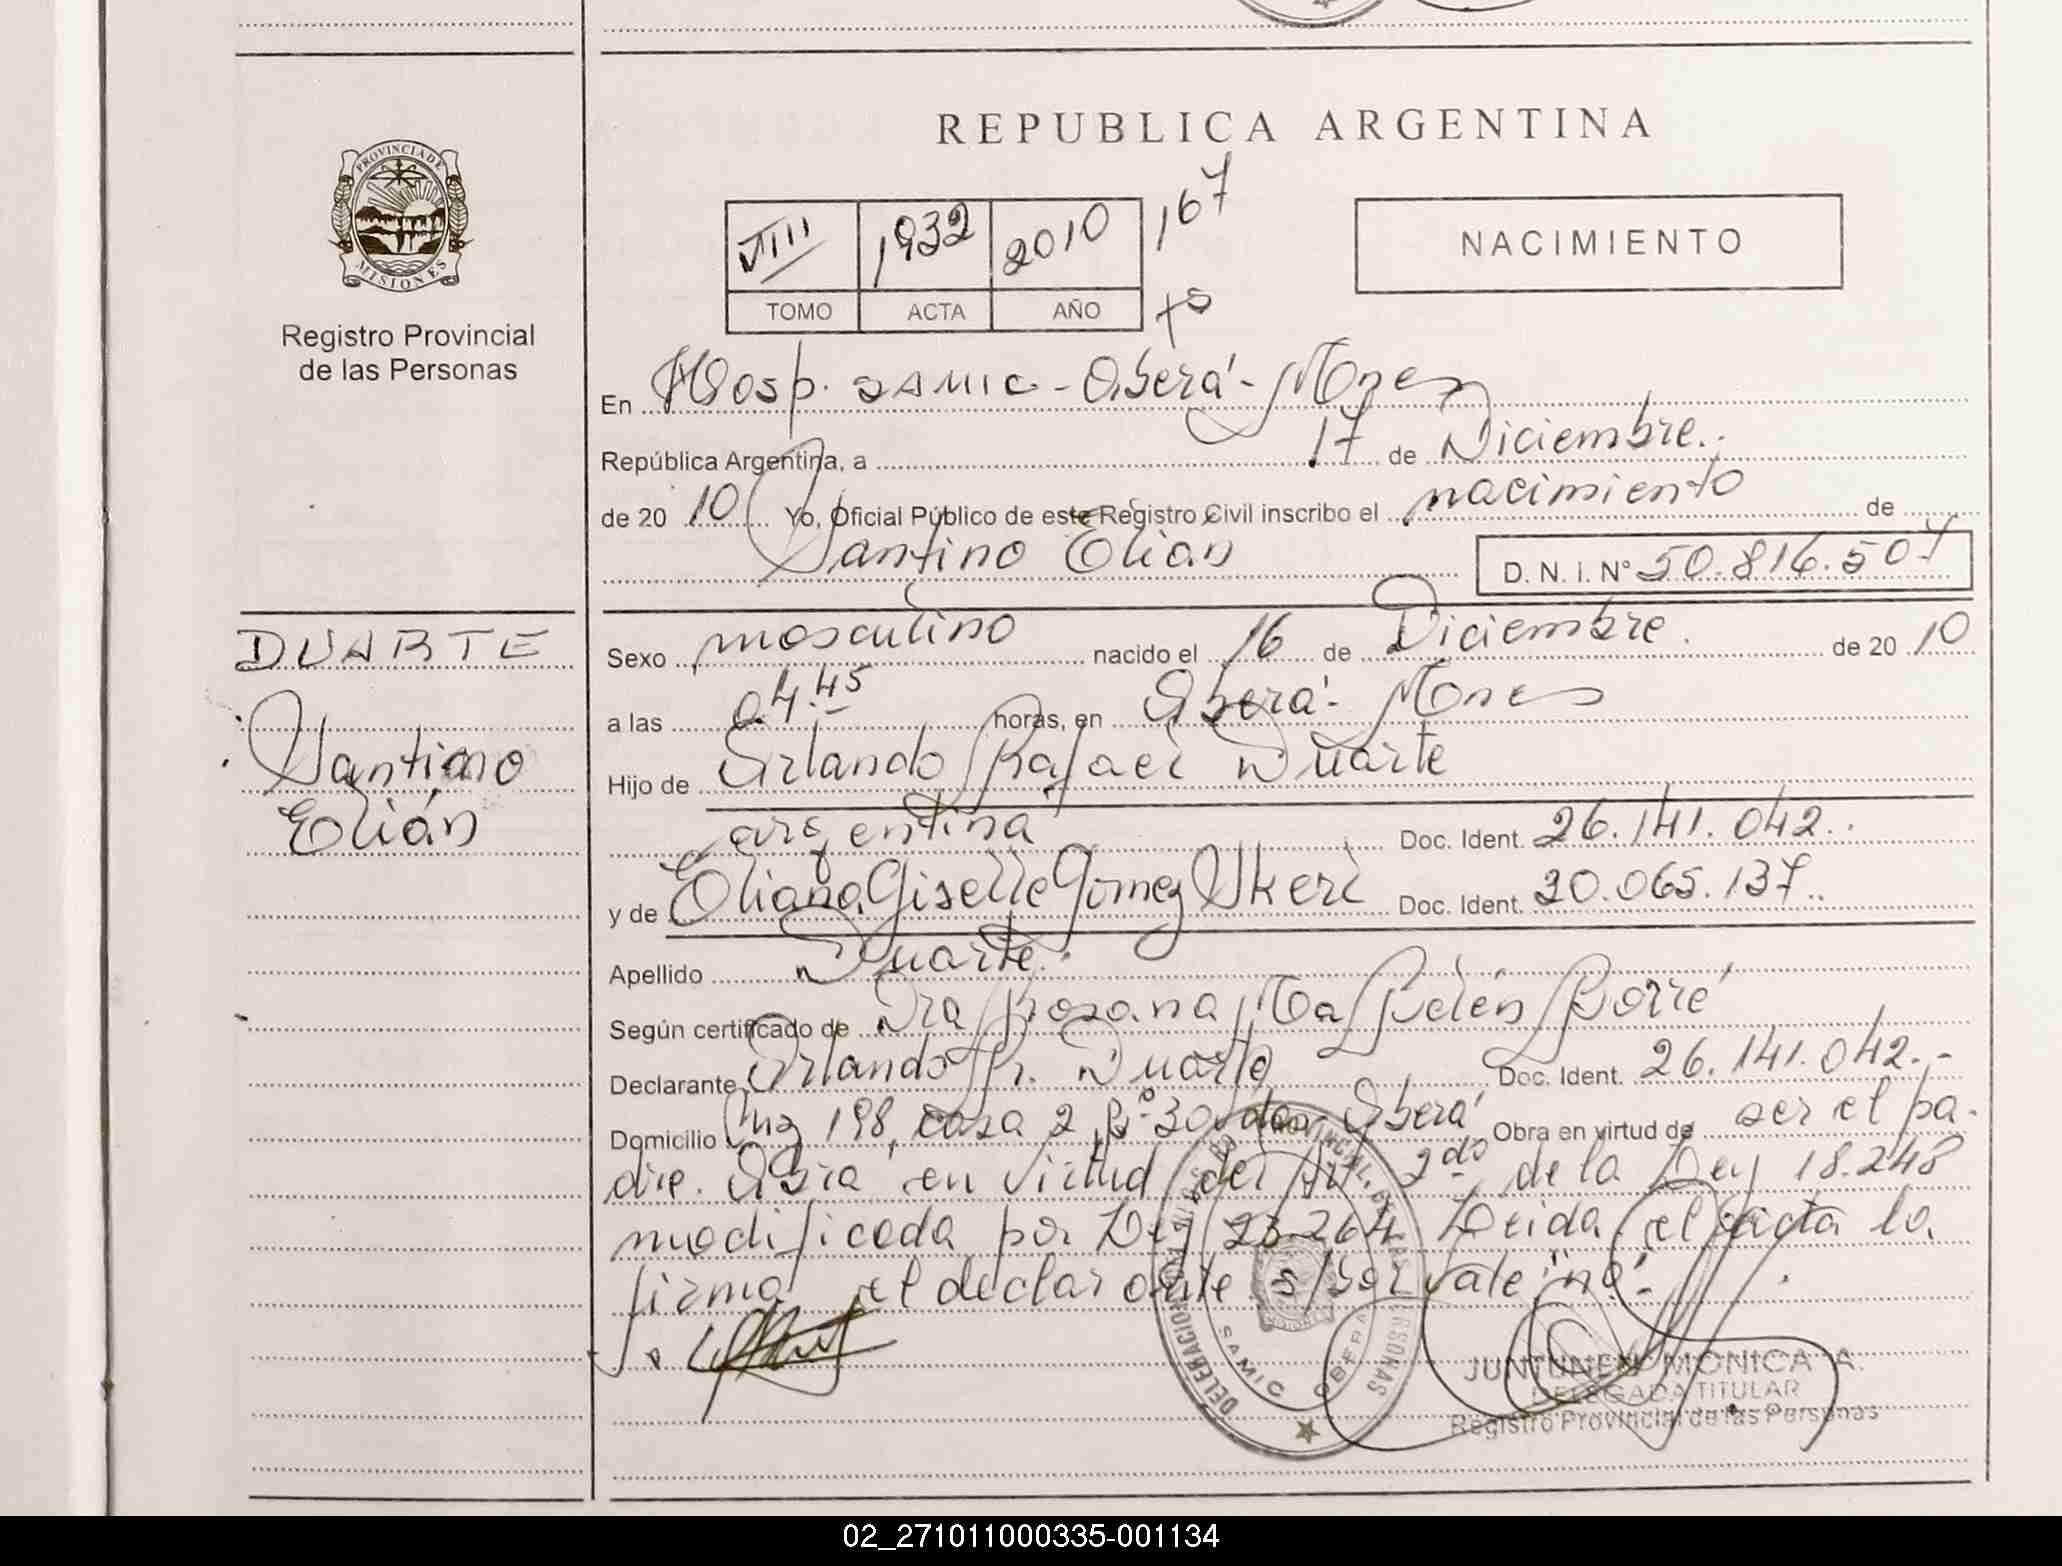 REPUBLICA ARGENTINA
PROVINCIA DE
MISIONES
Registro Provincial
de las Personas
VIII 1932 2010 167
TOMO ACTA AÑO
NACIMIENTO
En Hosp. SAMIC - Oberá - Mnes
República Argentina, a 17 de Diciembre
de 20 10 Yo, Oficial Público de este Registro Civil inscribo el nacimiento de
Santino Elián D. N. I. N° 50.816.507
DUARTE
Santino
Elián
Sexo masculino nacido el 16 de Diciembre de 20 10
a las 04.45 horas, en Oberá - Mnes
Hijo de Orlando Rafael Duarte
argentina Doc. Ident. 26.141.042
y de Eliana Giselle Gómez Doc. Ident. 30.065.137
Apellido Duarte
Según certificado de Dra Rosana Borré
Declarante Orlando R. Duarte Doc. Ident. 26.141.042.-
Domicilio Mz 198, casa 2 Oberá Obra en virtud de ser el pa-
dre. en virtud del Art. 2do de la Ley 18.248
modificada por Ley 23.264 Leida el acta la
firma el declarante s/bor vale "no".-
DELEGACION
PROVINCIAL DE LAS PERSONAS
SAMIC OBERA
JUNTUNEN MONICA A.
DELEGADA TITULAR
Registro Provincial de las Personas
02_271011000335-001134